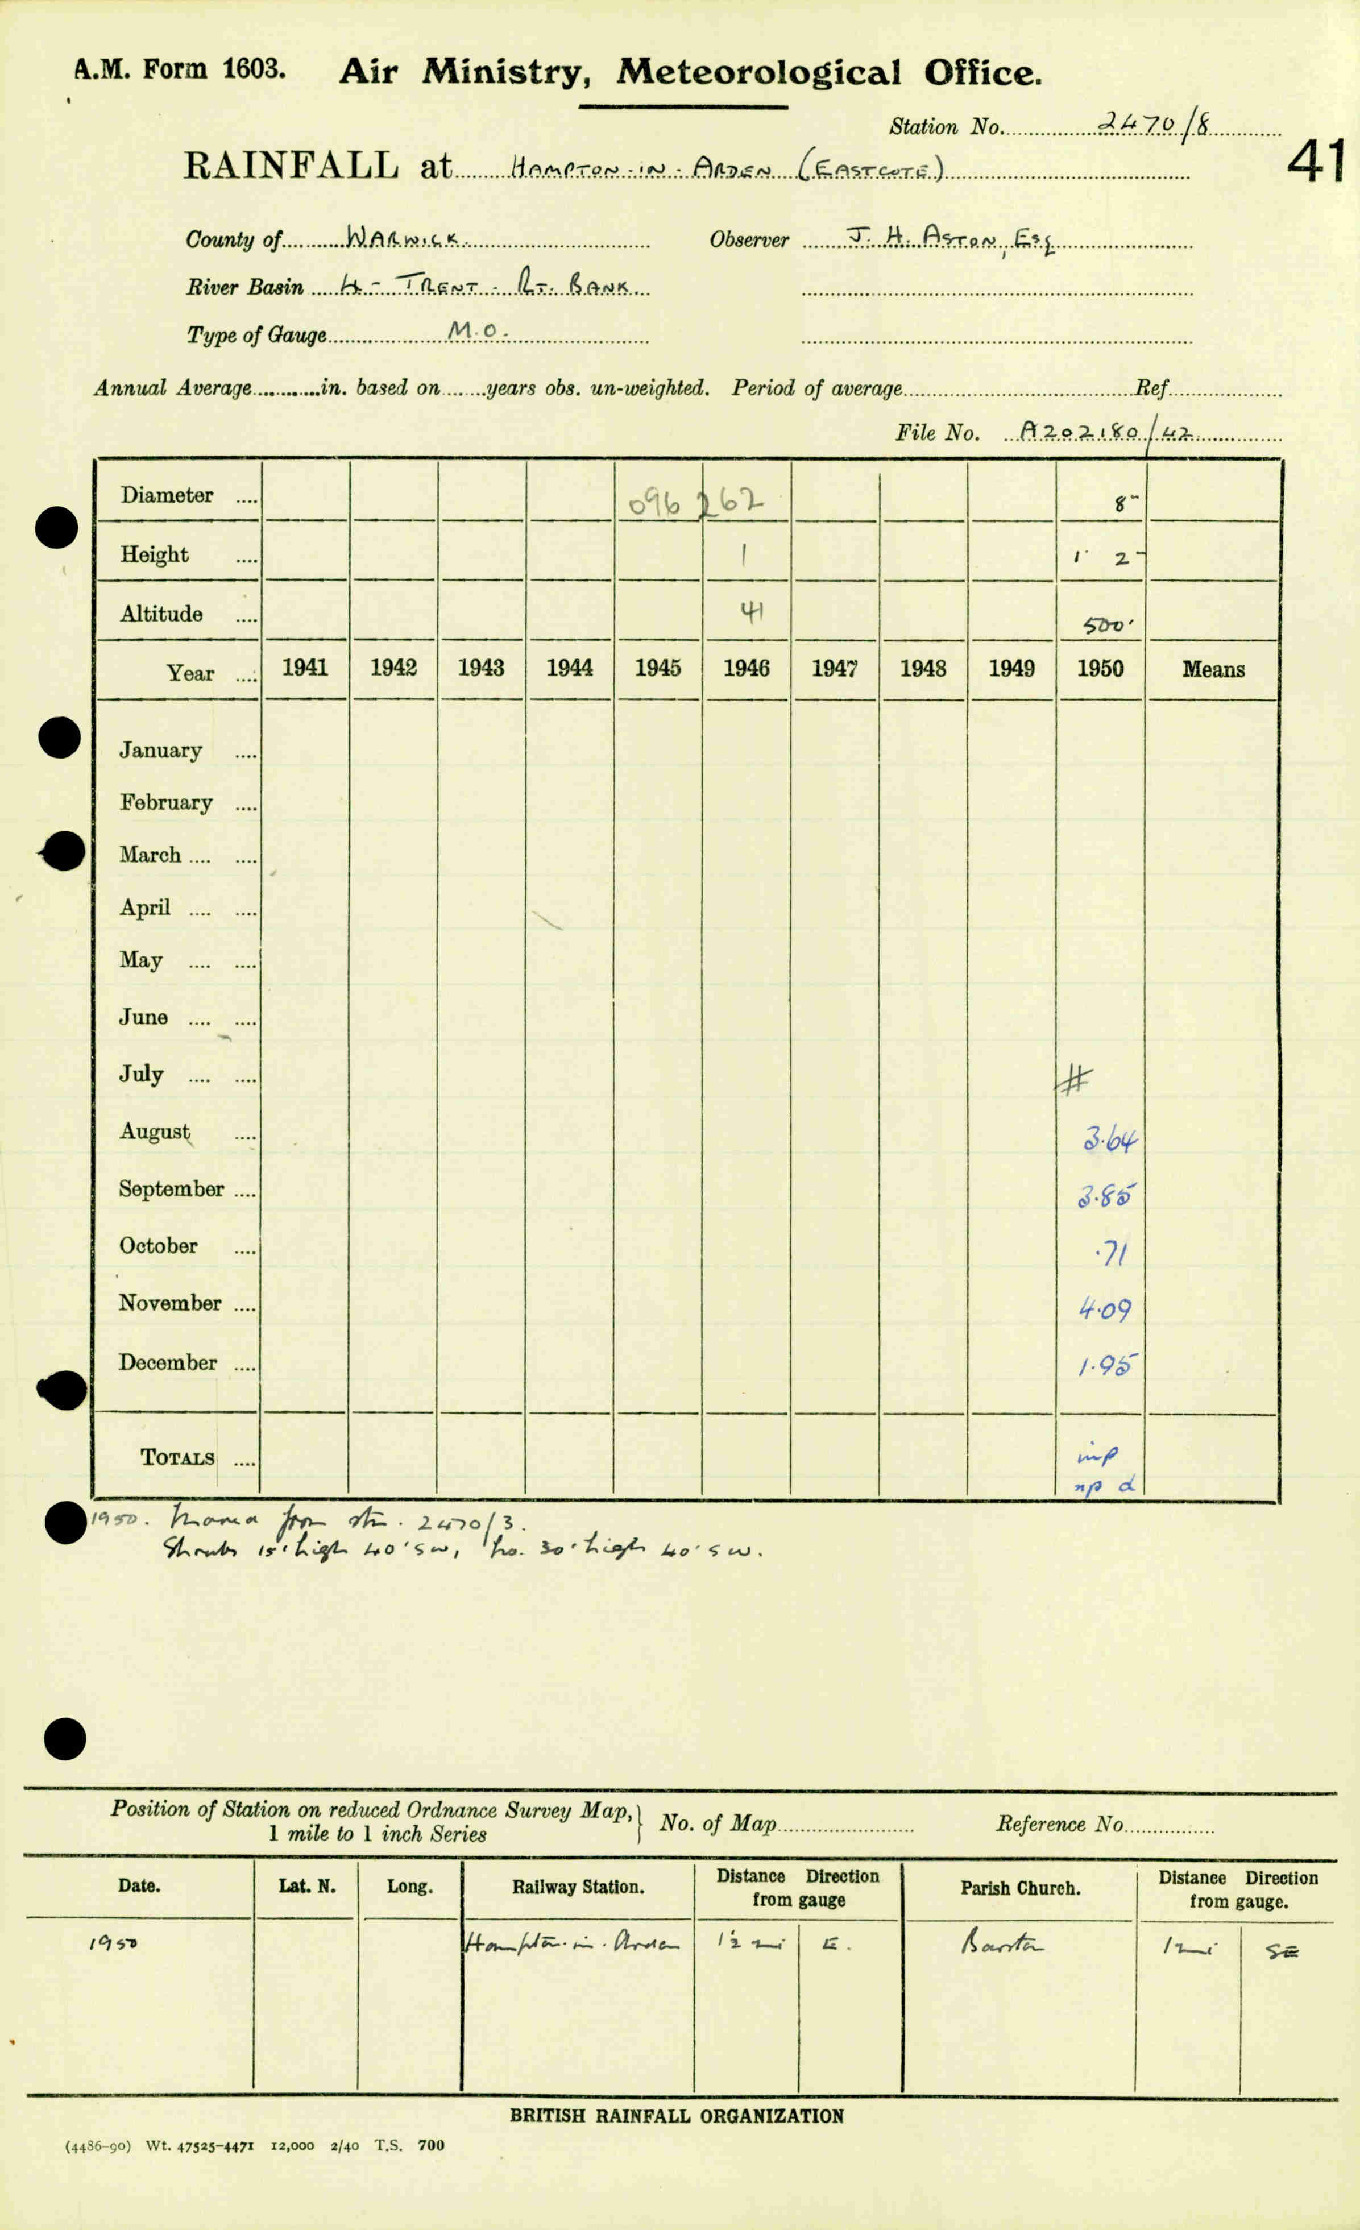 A.M. Form 1603. Air Ministry, Meteorological Office.
Station No. 2470/8
41
RAINFALL at HAMPTON-IN-ARDEN (EASTCOTE)
County of WARWICK. Observer J. H. ASTON, Esq
River Basin 4 - TRENT - RT. BANK
Type of Gauge M.O.
Annual Average in. based on years obs. un-weighted. Period of average Ref.
File No. A202180/42
Diameter 096 262 8"
Height 1 1' 2"
Altitude 41 500'
Year 1941 1942 1943 1944 1945 1946 1947 1948 1949 1950 Means
January
February
March
April
May
June
July #
August 3.64
September 3.85
October .71
November 4.09
December 1.95
TOTALS imp
np d
1950. Moved from stn. 2470/3.
Shrubs 15' high 40' SW, ho. 30' high 40' SW.
Position of Station on reduced Ordnance Survey Map, } No. of Map Reference No.
1 mile to 1 inch Series
Date. Lat. N. Long. Railway Station. Distance Direction from gauge Parish Church. Distance Direction from gauge.
1950 Hampton-in-Arden 1½ mi E. Barston 1 mi SE
BRITISH RAINFALL ORGANIZATION
(4486-90) Wt. 47525-4471 12,000 2/40 T.S. 700